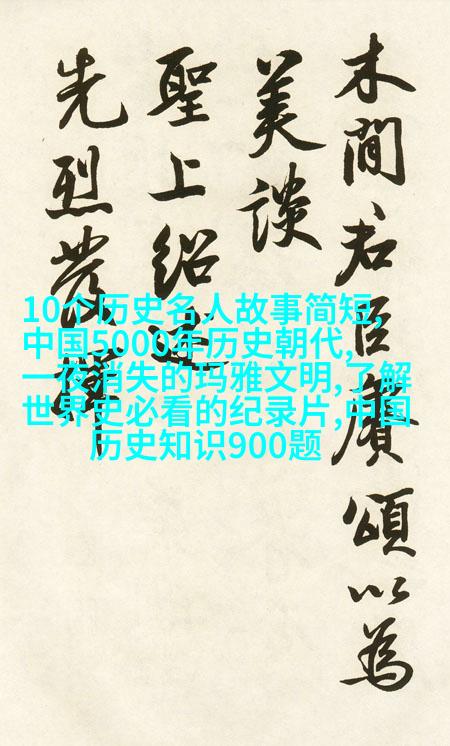 木間君臣賡頌以為
美談
聖上紹述
先烈發
10个历史名人故事简短,
中国5000年历史朝代,
一夜消失的玛雅文明,了解
世界史必看的纪录片,中国
历史知识900题